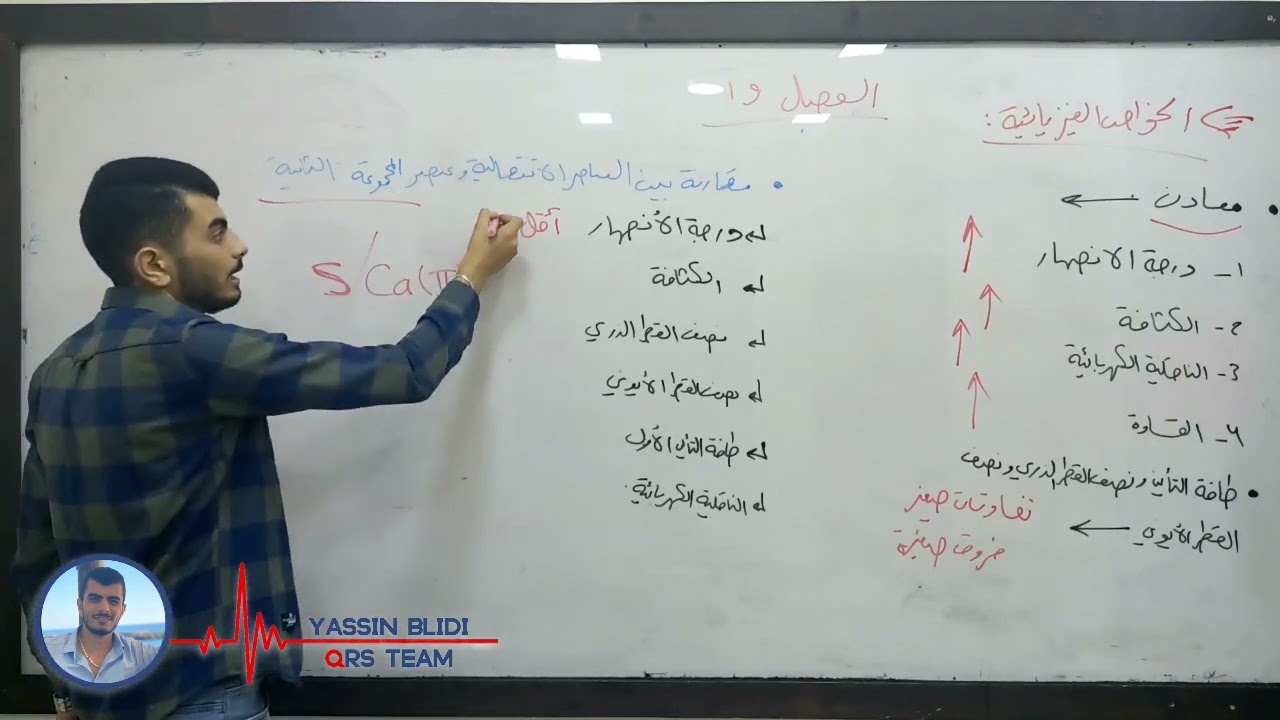 الفصل 19
⇐ الخواص الفيزيائية:
• معادن ←
1- درجة الانصهار ↑
2- الكثافة ↑
3- الناقلية الكهربائية ↑
4- القساوة ↑
• طاقة التأين ونصف القطر الذري ونصف
القطر الأيوني ← تفاوتات صغيرة
فروق صغيرة
• مقارنة بين العناصر الانتقالية وعنصر المجموعة الثانية
درجة الأنصهار أقل
S Ca(II
الكثافة
نصف القطر الذري
نصف القطر الأيوني
طاقة التأين الأول
الناقلية الكهربائية
YASSIN BLIDI
QRS TEAM